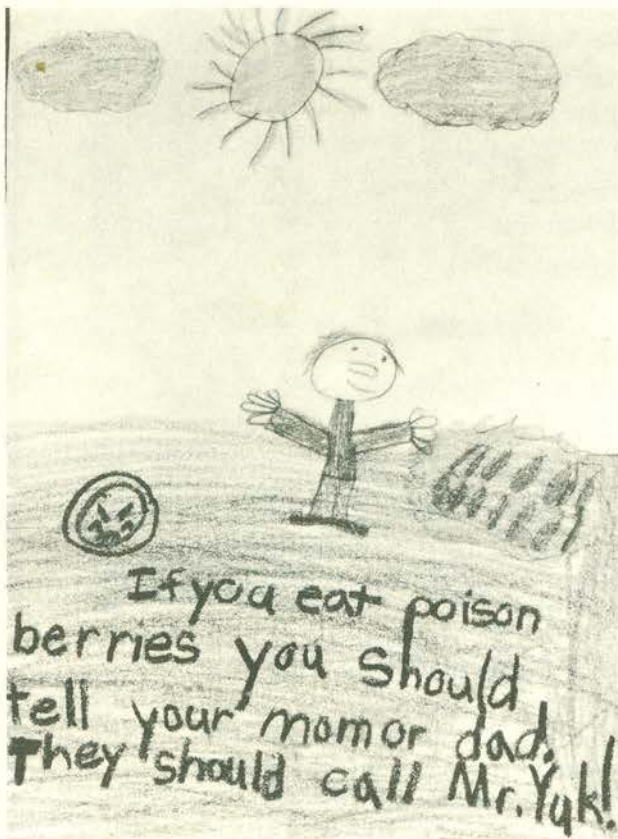 If you eat poison
berries you should
tell your mom or dad.
They should call Mr. Yuk!